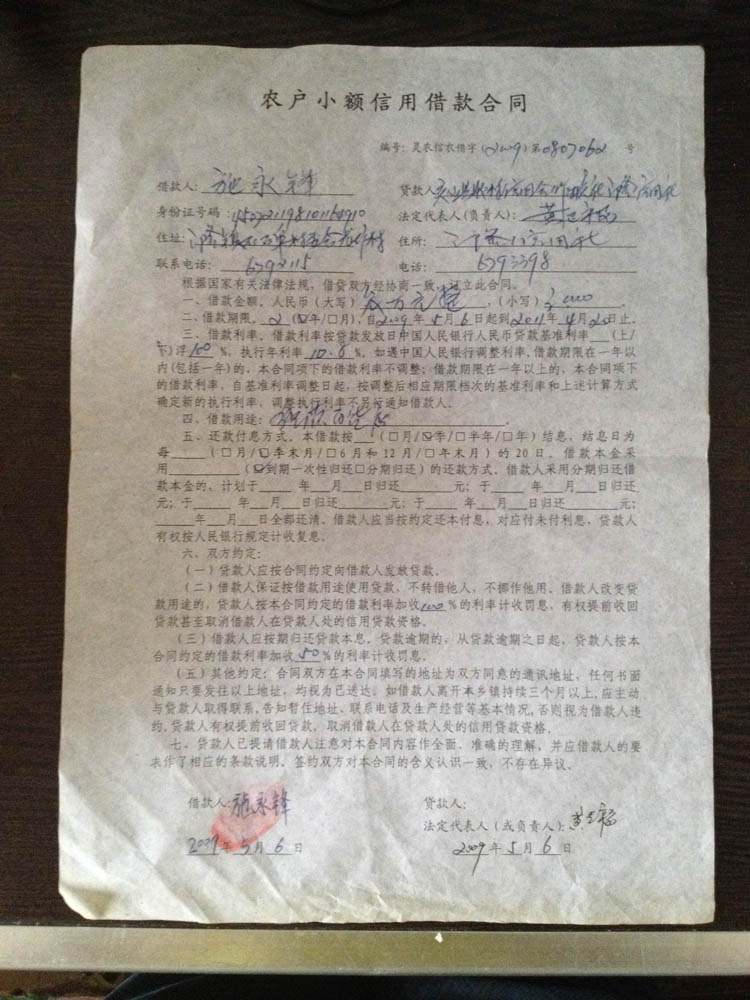 农户小额信用借款合同
编号：灵农信农借字（2009）第0807062 号
借款人：施永锋 贷款人：
身份证号码： 法定代表人（负责人）：
住址： 住所：
联系电话：6792115 电话：6793398
根据国家有关法律法规，借贷双方经协商一致，订立此合同。
一、借款金额。人民币（大写） ，（小写） .
二、借款期限。2（☑年/□月），自2009年5月6日起到2011年4月20日止。
三、借款利率。借款利率按贷款发放日中国人民银行人民币贷款基准利率 （上/
下）浮100 %，执行年利率10.8%，如遇中国人民银行调整利率，借款期限在一年以
内（包括一年）的，本合同项下的借款利率不调整；借款期限在一年以上的，本合同项下
的借款利率，自基准利率调整日起，按调整后相应期限档次的基准利率和上述计算方式
确定新的执行利率，调整执行利率不另行通知借款人。
四、借款用途： .
五、还款付息方式。本借款按 （□月/☑季/□半年/□年）结息，结息日为
每 （□月/☑季末月/□6月和12月/□年末月）的20日。借款本金采
用 （☑到期一次性归还□分期归还）的还款方式。借款人采用分期归还借
款本金的，计划于 年 月 日归还 元；于 年 月 日归还
元；于 年 月 日归还 元；于 年 月 日归还 元；
年 月 日全部还清。借款人应当按约定还本付息，对应付未付利息，贷款人
有权按人民银行规定计收复息。
六、双方约定：
（一）贷款人应按合同约定向借款人发放贷款。
（二）借款人保证按借款用途使用贷款，不转借他人，不挪作他用。借款人改变贷
款用途的，贷款人按本合同约定的借款利率加收100%的利率计收罚息，有权提前收回
贷款甚至取消借款人在贷款人处的信用贷款资格。
（三）借款人应按期归还贷款本息。贷款逾期的，从贷款逾期之日起，贷款人按本
合同约定的借款利率加收50%的利率计收罚息。
（五）其他约定：合同双方在本合同填写的地址为双方同意的通讯地址，任何书面
通知只要发往以上地址，均视为已送达。如借款人离开本乡镇持续三个月以上，应主动
与贷款人取得联系，告知暂住地址、联系电话及生产经营等基本情况，否则视为借款人违
约，贷款人有权提前收回贷款，取消借款人在贷款人处的信用贷款资格。
七、贷款人已提请借款人注意对本合同内容作全面、准确的理解，并应借款人的要
求作了相应的条款说明。签约双方对本合同的含义认识一致，不存在异议。
借款人：施永锋 贷款人：
法定代表人（或负责人）：
2009年5月6日 2009年5月6日